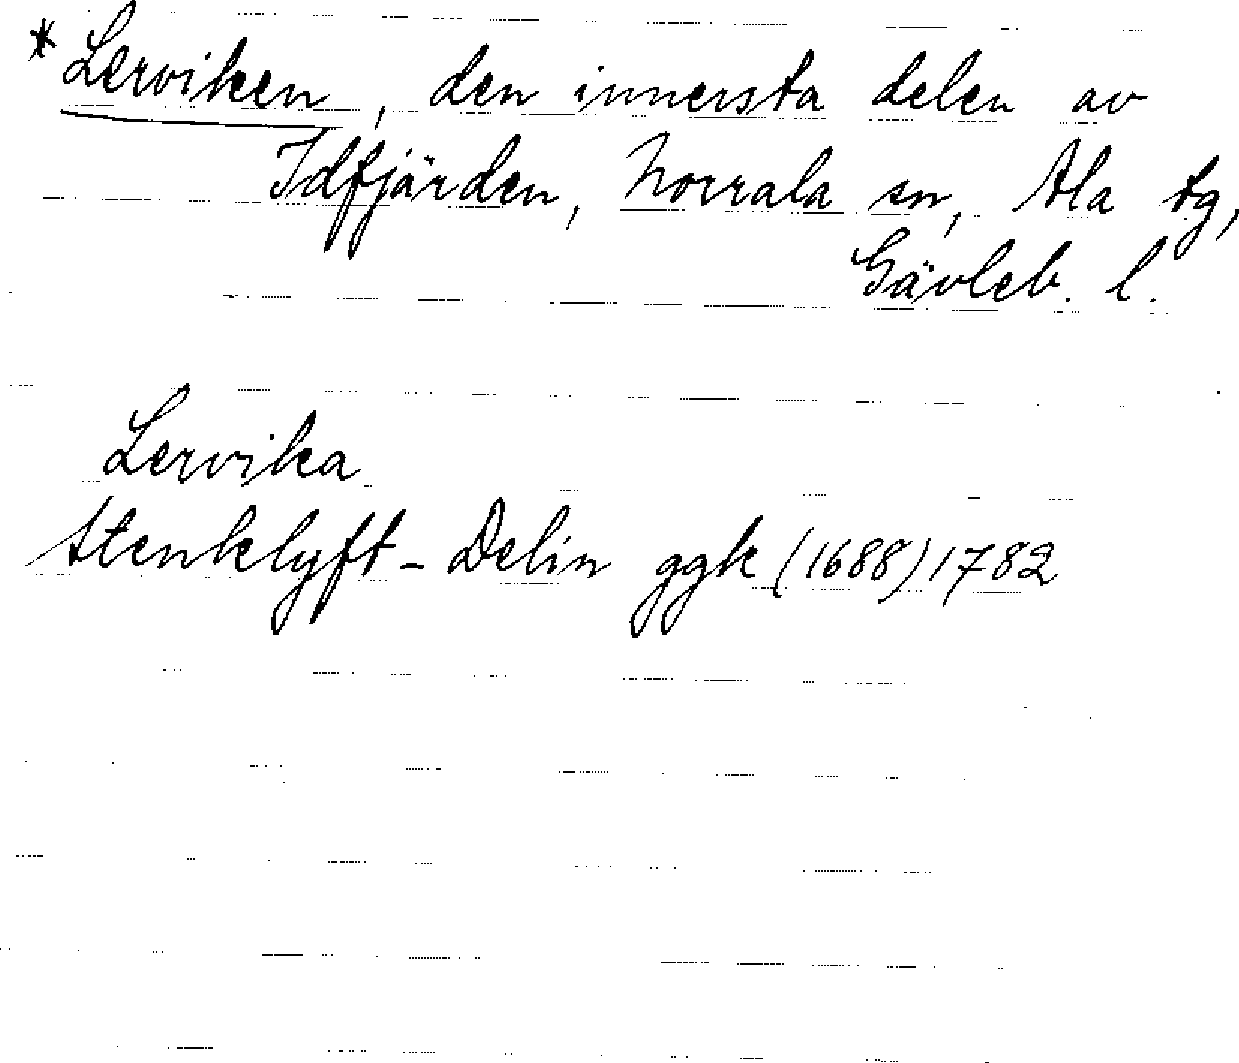 * Lerviken, den innersta delen av
Idfjärden, Norrala sn, Ala tg,
Gävleb. l.
Lervika
Stenklyft-Delin ggk (1688) 1782